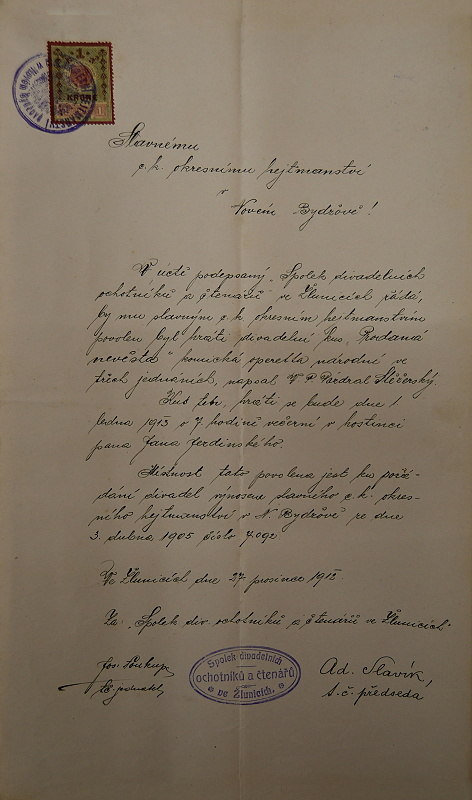 Slavnému
c. k. okresnímu hejtmanství
v
Novém Bydžově!
V úctě podepsaný „Spolek divadelních
ochotníků a čtenářů" ve Žlunicích žádá,
by mu slavným c. k. okresním hejtmanstvím
povolen byl hráti divadelní kus „Prodaná
nevěsta" komická operetta národní ve
třech jednáních, napsal V. P.
Kus ten, hráti se bude dne 1.
ledna 1913 o 7. hodině večerní v hostinci
pana Jana Ferdinského.
Místnost tato povolena jest ku pořá-
dání divadel výnosem slavného c. k. okres-
ního hejtmanství v N. Bydžově ze dne
3. dubna 1905 číslo 7.092
Ve Žlunicích dne 27. prosince 1912
Za: „Spolek div. ochotníků a čtenářů ve Žlunicích"
Jos. Soukup,
jednatel,
Spolek divadelních
ochotníků a čtenářů
ve Žlunicích.
Ad. Slavík,
t. č. předseda